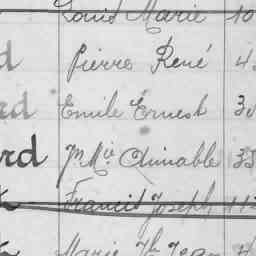 Louis Marie 10
d Pierre René 4
rd Emile Ernest 30
ard Jn Mie Aimable 35
Francis Joseph 11
Marie Th Jean